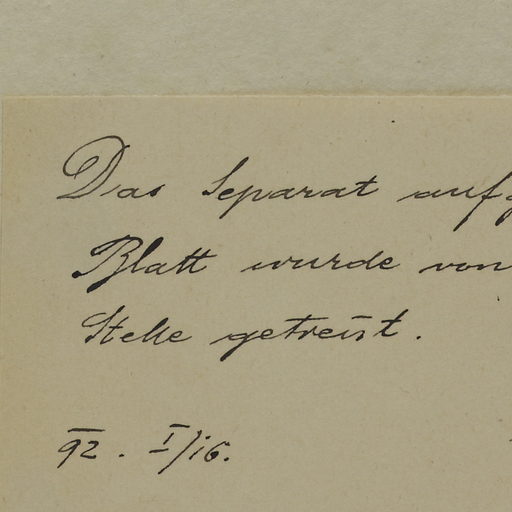 Das Separat aufg
Blatt wurde von
Stelle getrennt.
92. I/16.